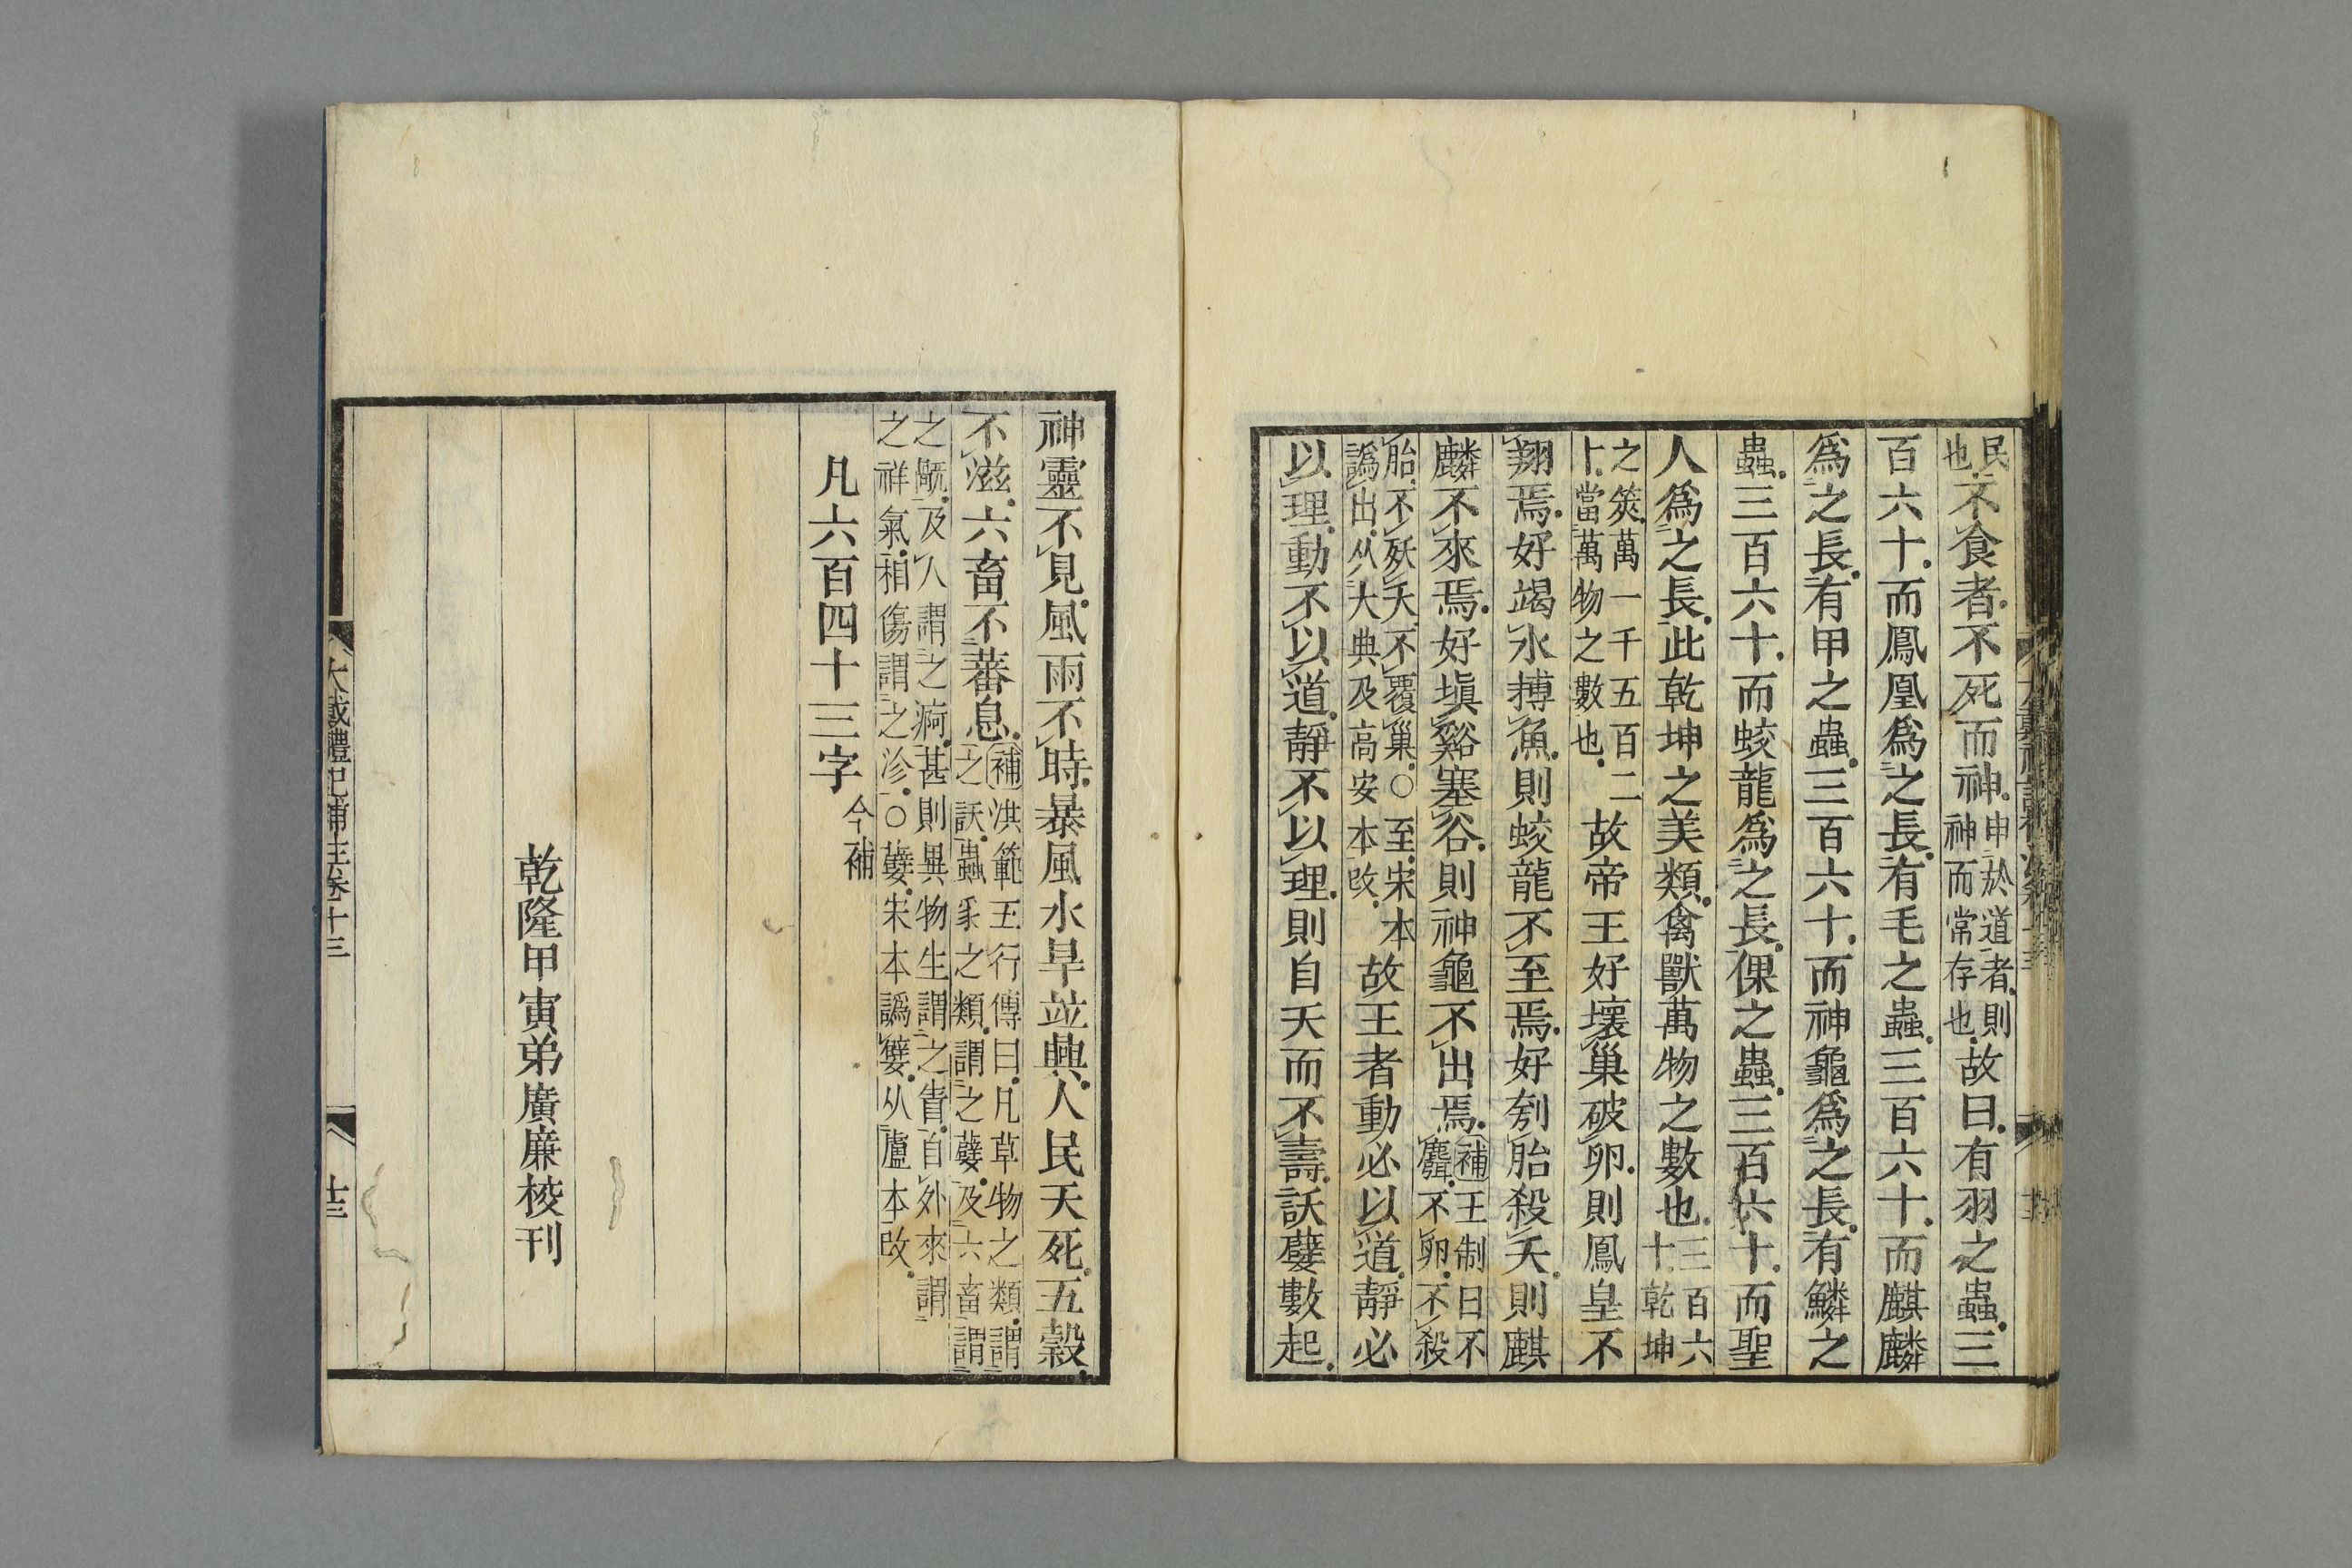 民也不食者不死而神申於道者則神而常存也故曰有羽之蟲三
百六十而鳳凰爲之長有毛之蟲三百六十而麒麟
爲之長有甲之蟲三百六十而神龜爲之長有鱗之
蟲三百六十而蛟龍爲之長倮之蟲三百六十而聖
人爲之長此乾坤之美類禽獸萬物之數也三百六十乾坤
之筴萬一千五百二十當萬物之數也故帝王好壞巢破卵則鳳皇不
翔焉好竭水搏魚則蛟龍不至焉好刳胎殺夭則麒
麟不來焉好塡谿塞谷則神龜不出焉補王制曰不麛不卵不殺
胎不殀夭不覆巢○至宋本譌出从大典及高安本改故王者動必以道靜必
以理動不以道靜不以理則自夭而不壽訞孼數起
神靈不見風雨不時暴風水旱竝興人民夭死五穀
不滋六畜不蕃息補洪範五行傳曰凡草物之類謂之訞蟲豸之類謂之孼及六畜謂
之旤及人謂之痾甚則異物生謂之眚自外來謂之祥氣相傷謂之沴○孼朱本譌嬖从盧本改
凡六百四十三字今補
乾隆甲寅弟廣廉校刊
大戴禮記補注卷十三
十三